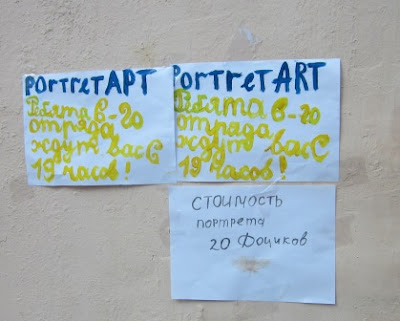 PORTretAPT
Ребята в-20
отряда
ждут вас с
19 часов!
PORTretART
Ребята в-20
отряда
ждут вас с
19 часов!
СТОИМОСТЬ
портрета
20 Дошиков